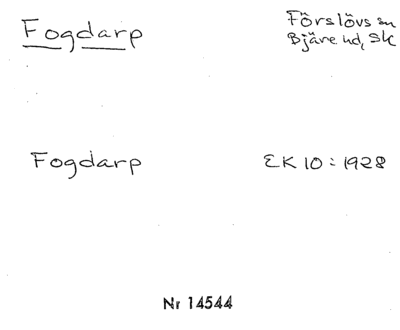 Fogdarp
Förslövs sn
Bjäre hd, Sk
Fogdarp
EK 10:1928
Nr 14544